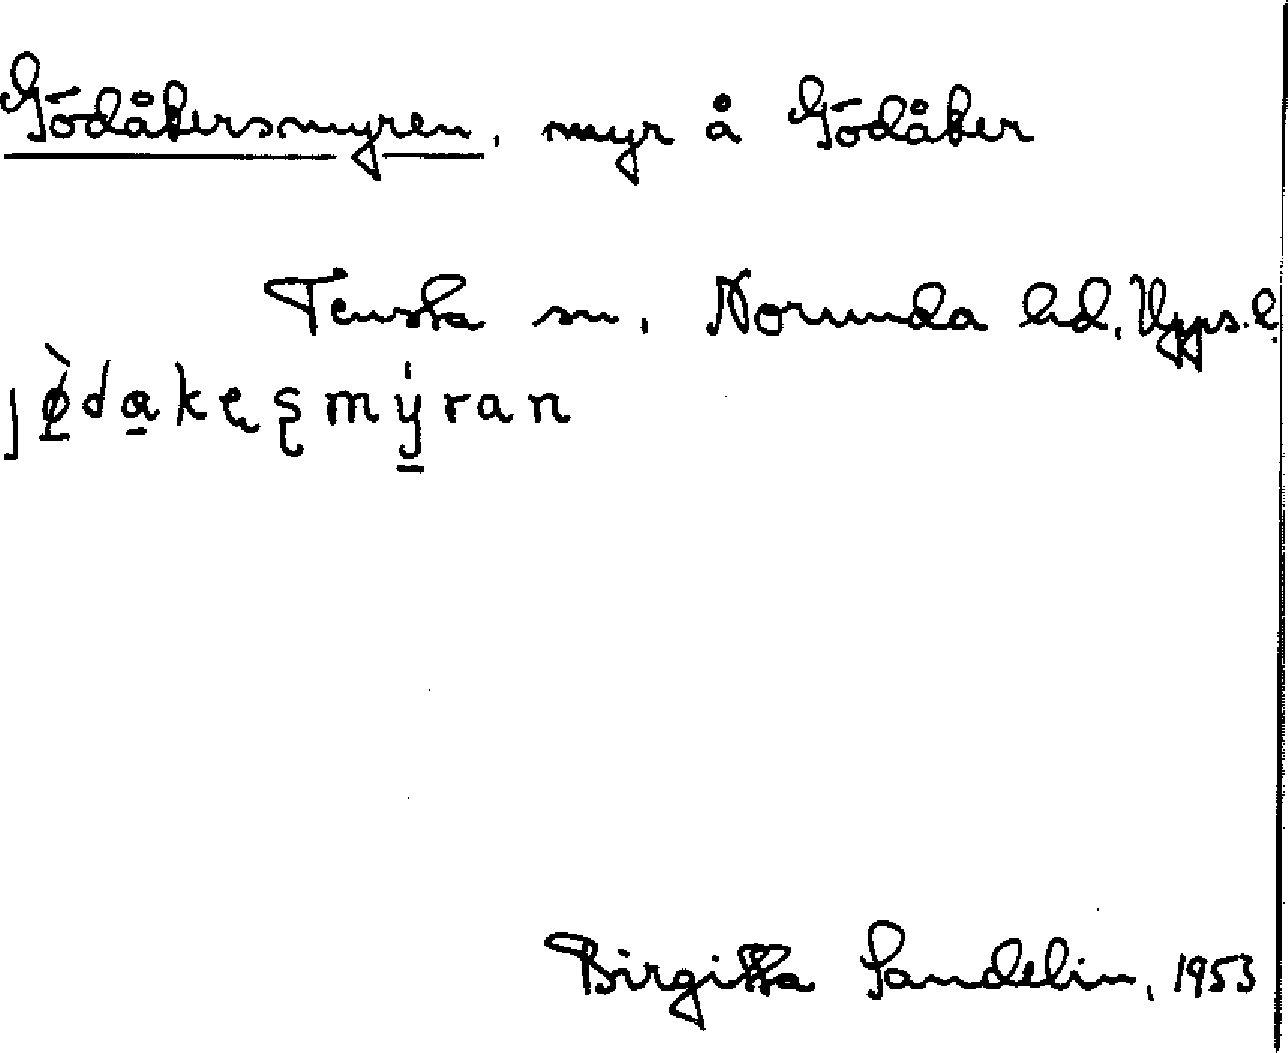 Gödåkersmyren, myr å Gödåker
Tensta sn, Norunda hd, Upps. l.
jø̱̀da̱kęs̨mý̱ran
Birgitta Sandelin, 1953